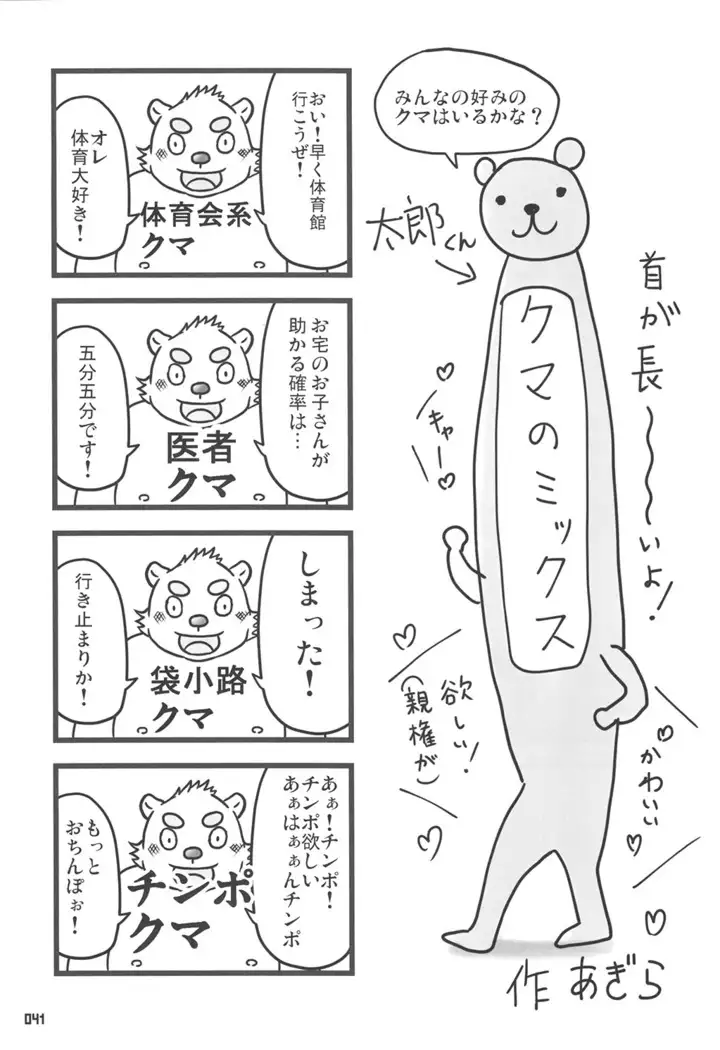 みんなの好みの
クマはいるかな？
太郎くん
クマのミックス
首が長～～～いよ！
キャー
欲しい！
（親権が）
かわいい
作 あぎら
おい！早く体育館
行こうぜ！
オレ
体育大好き！
体育会系
クマ
お宅のお子さんが
助かる確率は…
五分五分です！
医者
クマ
しまった！
行き止まりか！
袋小路
クマ
あぁ！チンポ！
チンポ欲しい
あぁはぁぁんチンポ
もっと
おちんぽぉ！
チンポ
クマ
041